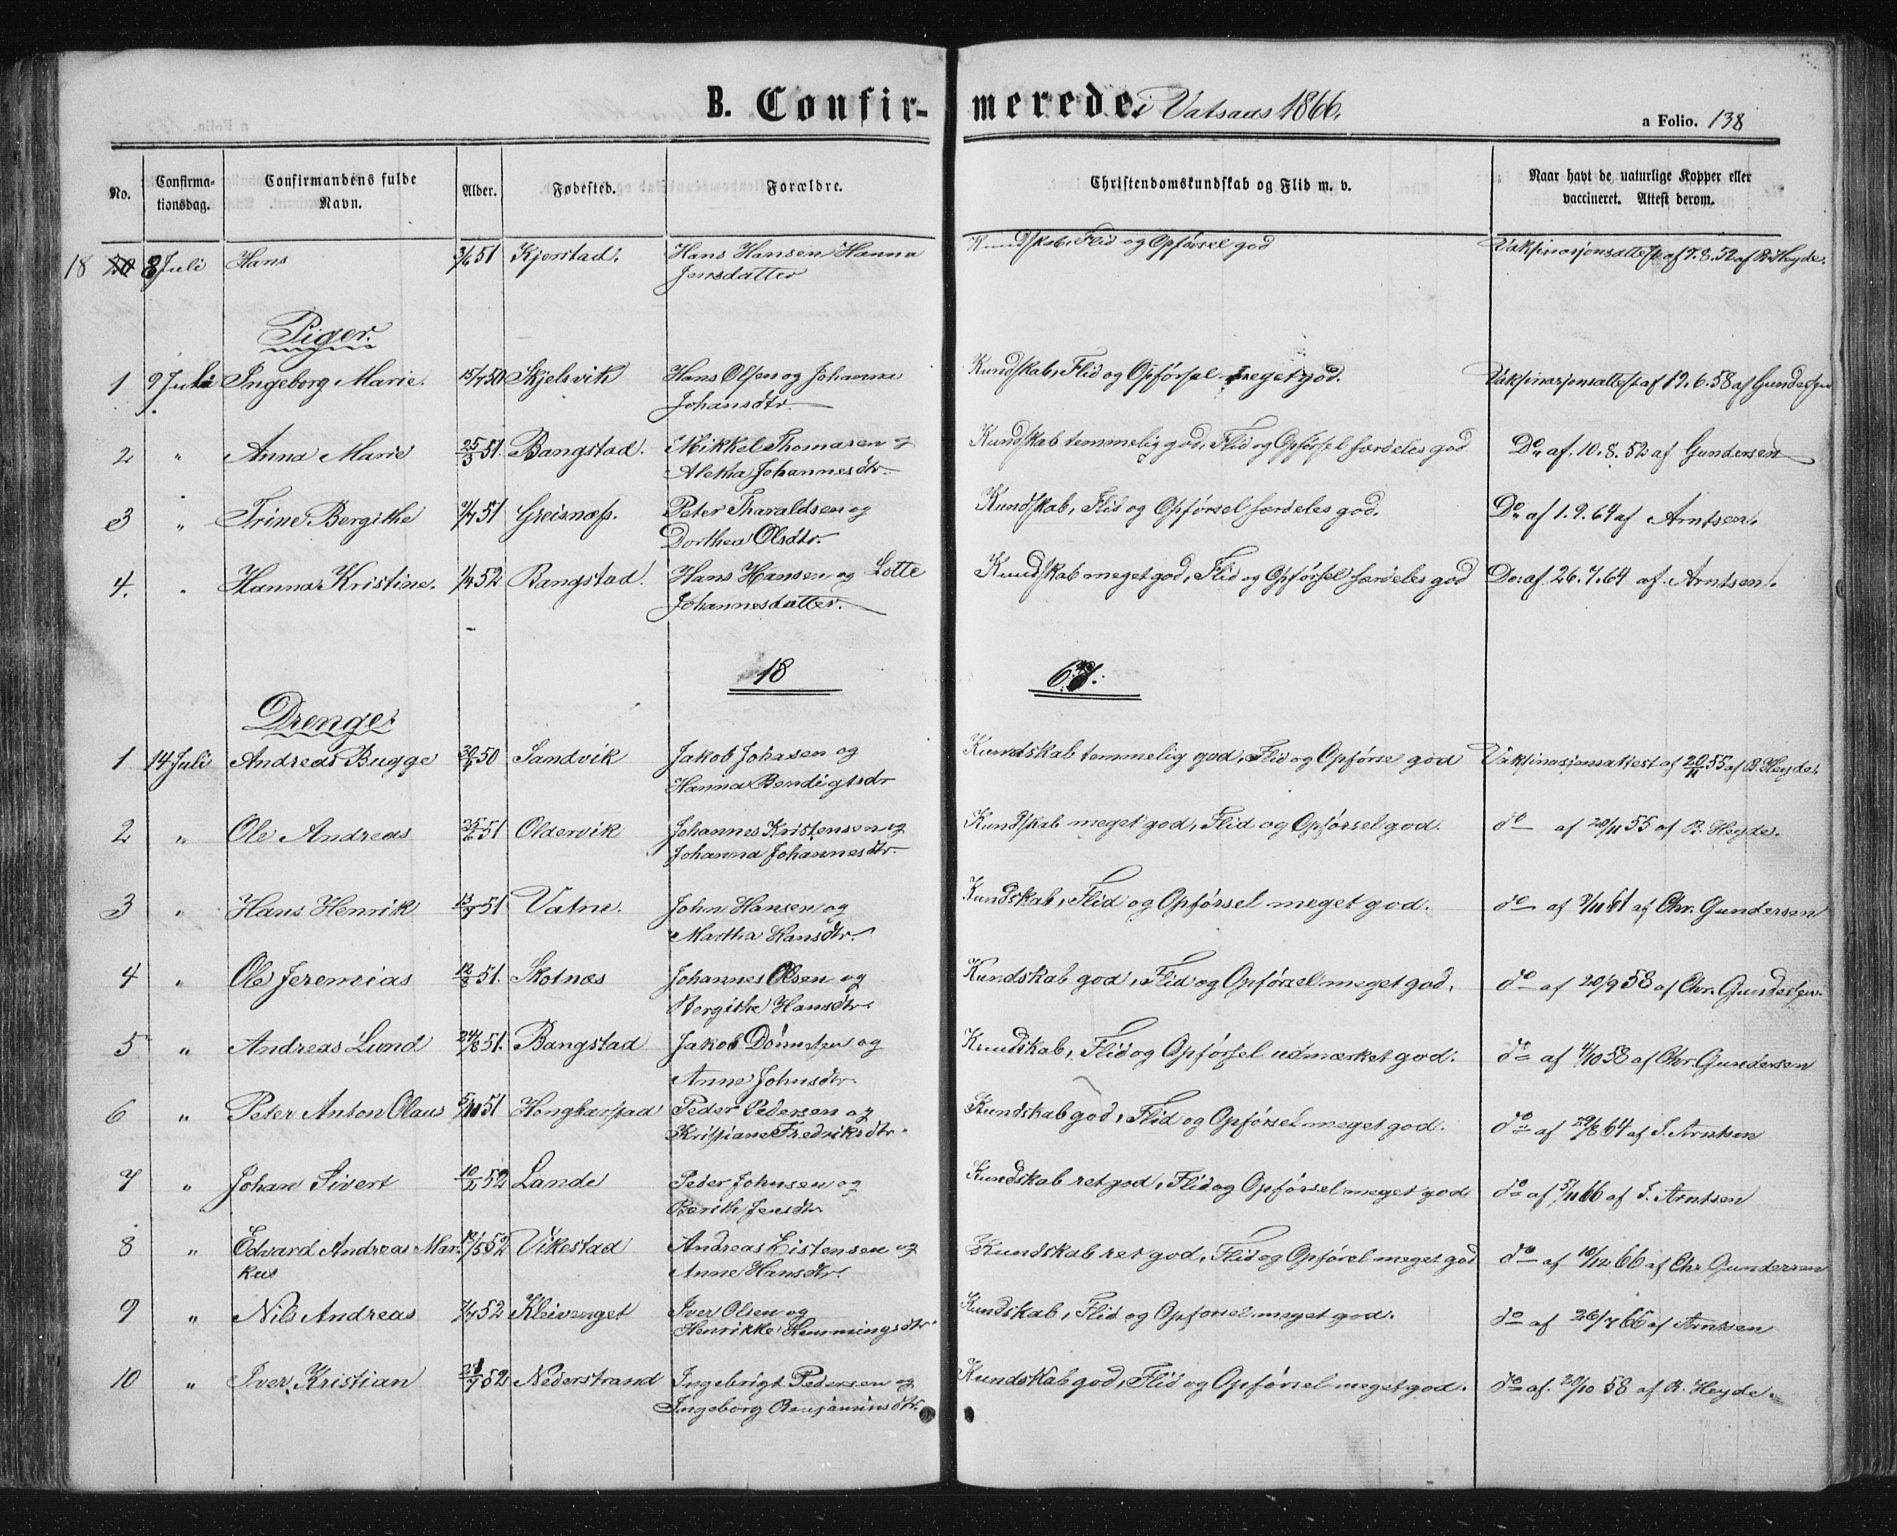 B. Confirmerede i Vatsaas 1866.
a Folio. 138
No. Confirmationsdag. Confirmandens fulde Navn. Alder. Fødested. Forældre. Christendomskundskab og Flid m. v. Naar havt de naturlige Kopper eller vaccineret. Attest derom.
18 8 Juli Hans 3/6 51 Kjerstad. Hans Hansen Hanna Kundskab, Flid og Opførsel god Vaksinasjonsattest af 17.8.52 af R. Heyde.
Jensdatter
Piger.
1 9 Juli Ingeborg Marie. 15/7 50 Skjelsvik Hans Olsen og Johanna Kundskab, Flid og Opførsel meget god. Vaksinasjonsattest af 12.6.58 af Gundersen
Johansdtr.
2 " Anna Marie 25/3 51 Bangstad. Mikkel Thomasen og Kundskab temmelig god, Flid og Opførsel særdeles god Do af. 10.8.52 af Gundersen
Aletha Johannesdtr.
3 " Trine Bergithe 9/7 51 Greisnæs. Peter Tharaldsen og Kundskab, Flid og Opførsel særdeles god. Do af 1.9.64 af Arntsen.
Dorthea Olsdtr.
4. " Hanna Kristine. 1/4 52 Bangstad. Hans Hansen og Lotte Kundskab meget god, Flid og Opførsel særdeles god Do. af. 26.7.64 af. Arntsen.
Johannesdatter.
18 67.
Drenge.
1 14 Juli Andreas Bugge 50 Sandvik Jakob Johasen og Kundskab temmelig god, Flid og Opførse god Vaksinasjonsattest af 20/11 55 af R. Heyde.
Hanna Bendigtsdr
2 " Ole Andreas 25/6 51 Oldervik Johannes Kristensen og Kundskab meget god, Flid og Opførsel god. do af 20/11 55 af R. Heyde.
Johanna Johannesdtr.
3 " Hans Henrik 13/7 51 Vatne. John Hansen og Kundskab, Flid og Opførsel meget god. do af 9/11 61 af Chr. Gundersen
Martha Hansdtr.
4 " Ole Jeremias 12/8 51. Skotnæs Johannes Olsen og Kundskab god, Flid og Opførsel meget god. do af 20/9 58 af Chr. Gundersen.
Bergithe Hansdtr.
5 " Andreas Lund 24/8 51. Bangstad Jakob Dønnesen og Kundskab, Flid og Opførsel udmærket god. do af 4/10 58 af Chr. Gundersen
Anne Johnsdtr.
6 " Peter Anton Olaus 5/10 51 Peder Pedersen og Kundskab god, Flid og Opførsel meget god. do af 29/8 64 af J. Arntsen
Kristiane Fredriksdtr.
7 " Johan Sivert 10/2 52 Lande Peder Johnsen og Kundskab ret god, Flid og Opførsel meget god do af 5/11 66 af J. Arntsen
Berith Jensdtr
8 " Edvard Andreas Mar- 12/5 52 Vikestad Andreas Eistensen og Kundskab ret god, Flid og Opførel meget god do af 10/12 66 af Chr. Gundersen
kus Anne Hansdtr.
9 " Nils Andreas 7/7 52 Kleivenget Iver Olsen og Kundskab, Flid og Opførsel meget god. do af 26/7 66 af Arntsen
Henrikke Hemmingsdtr.
10 " Iver Kristian 52 Nederstrand Ingebrigt Pedersen og Kundskab god, Flid og Opførsel meget god. do af. 20/10 58 af R. Heyde.
Ingeborg Benjaminsdtr.